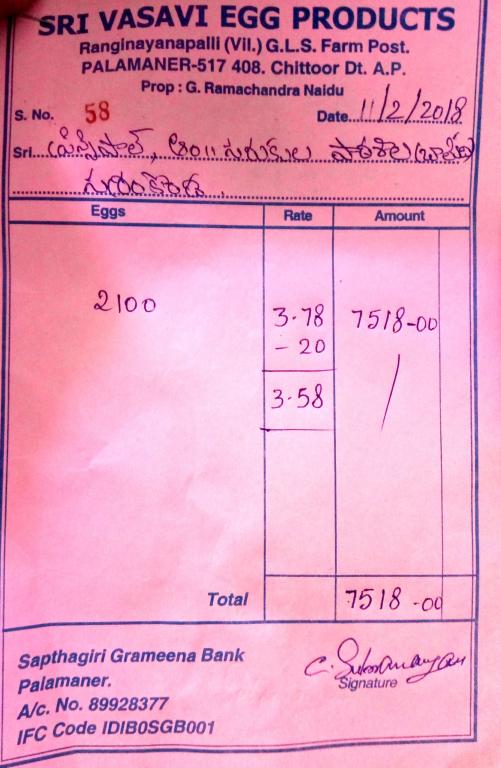 SRI VASAVI EGG PRODUCTS
Ranginayanapalli (Vil.) G.L.S. Farm Post.
PALAMANER-517 408. Chittoor Dt. A.P.
Prop : G. Ramachandra Naidu
S. No. 58 Date 11/2/2018
Sri ప్రిన్సిపాల్, గురుకుల
Eggs Rate Amount
2100 3.78 7518-00
- 20
3.58
Total 7518-00
Sapthagiri Grameena Bank
Palamaner.
A/c. No. 89928377
IFC Code IDIB0SGB001
Signature